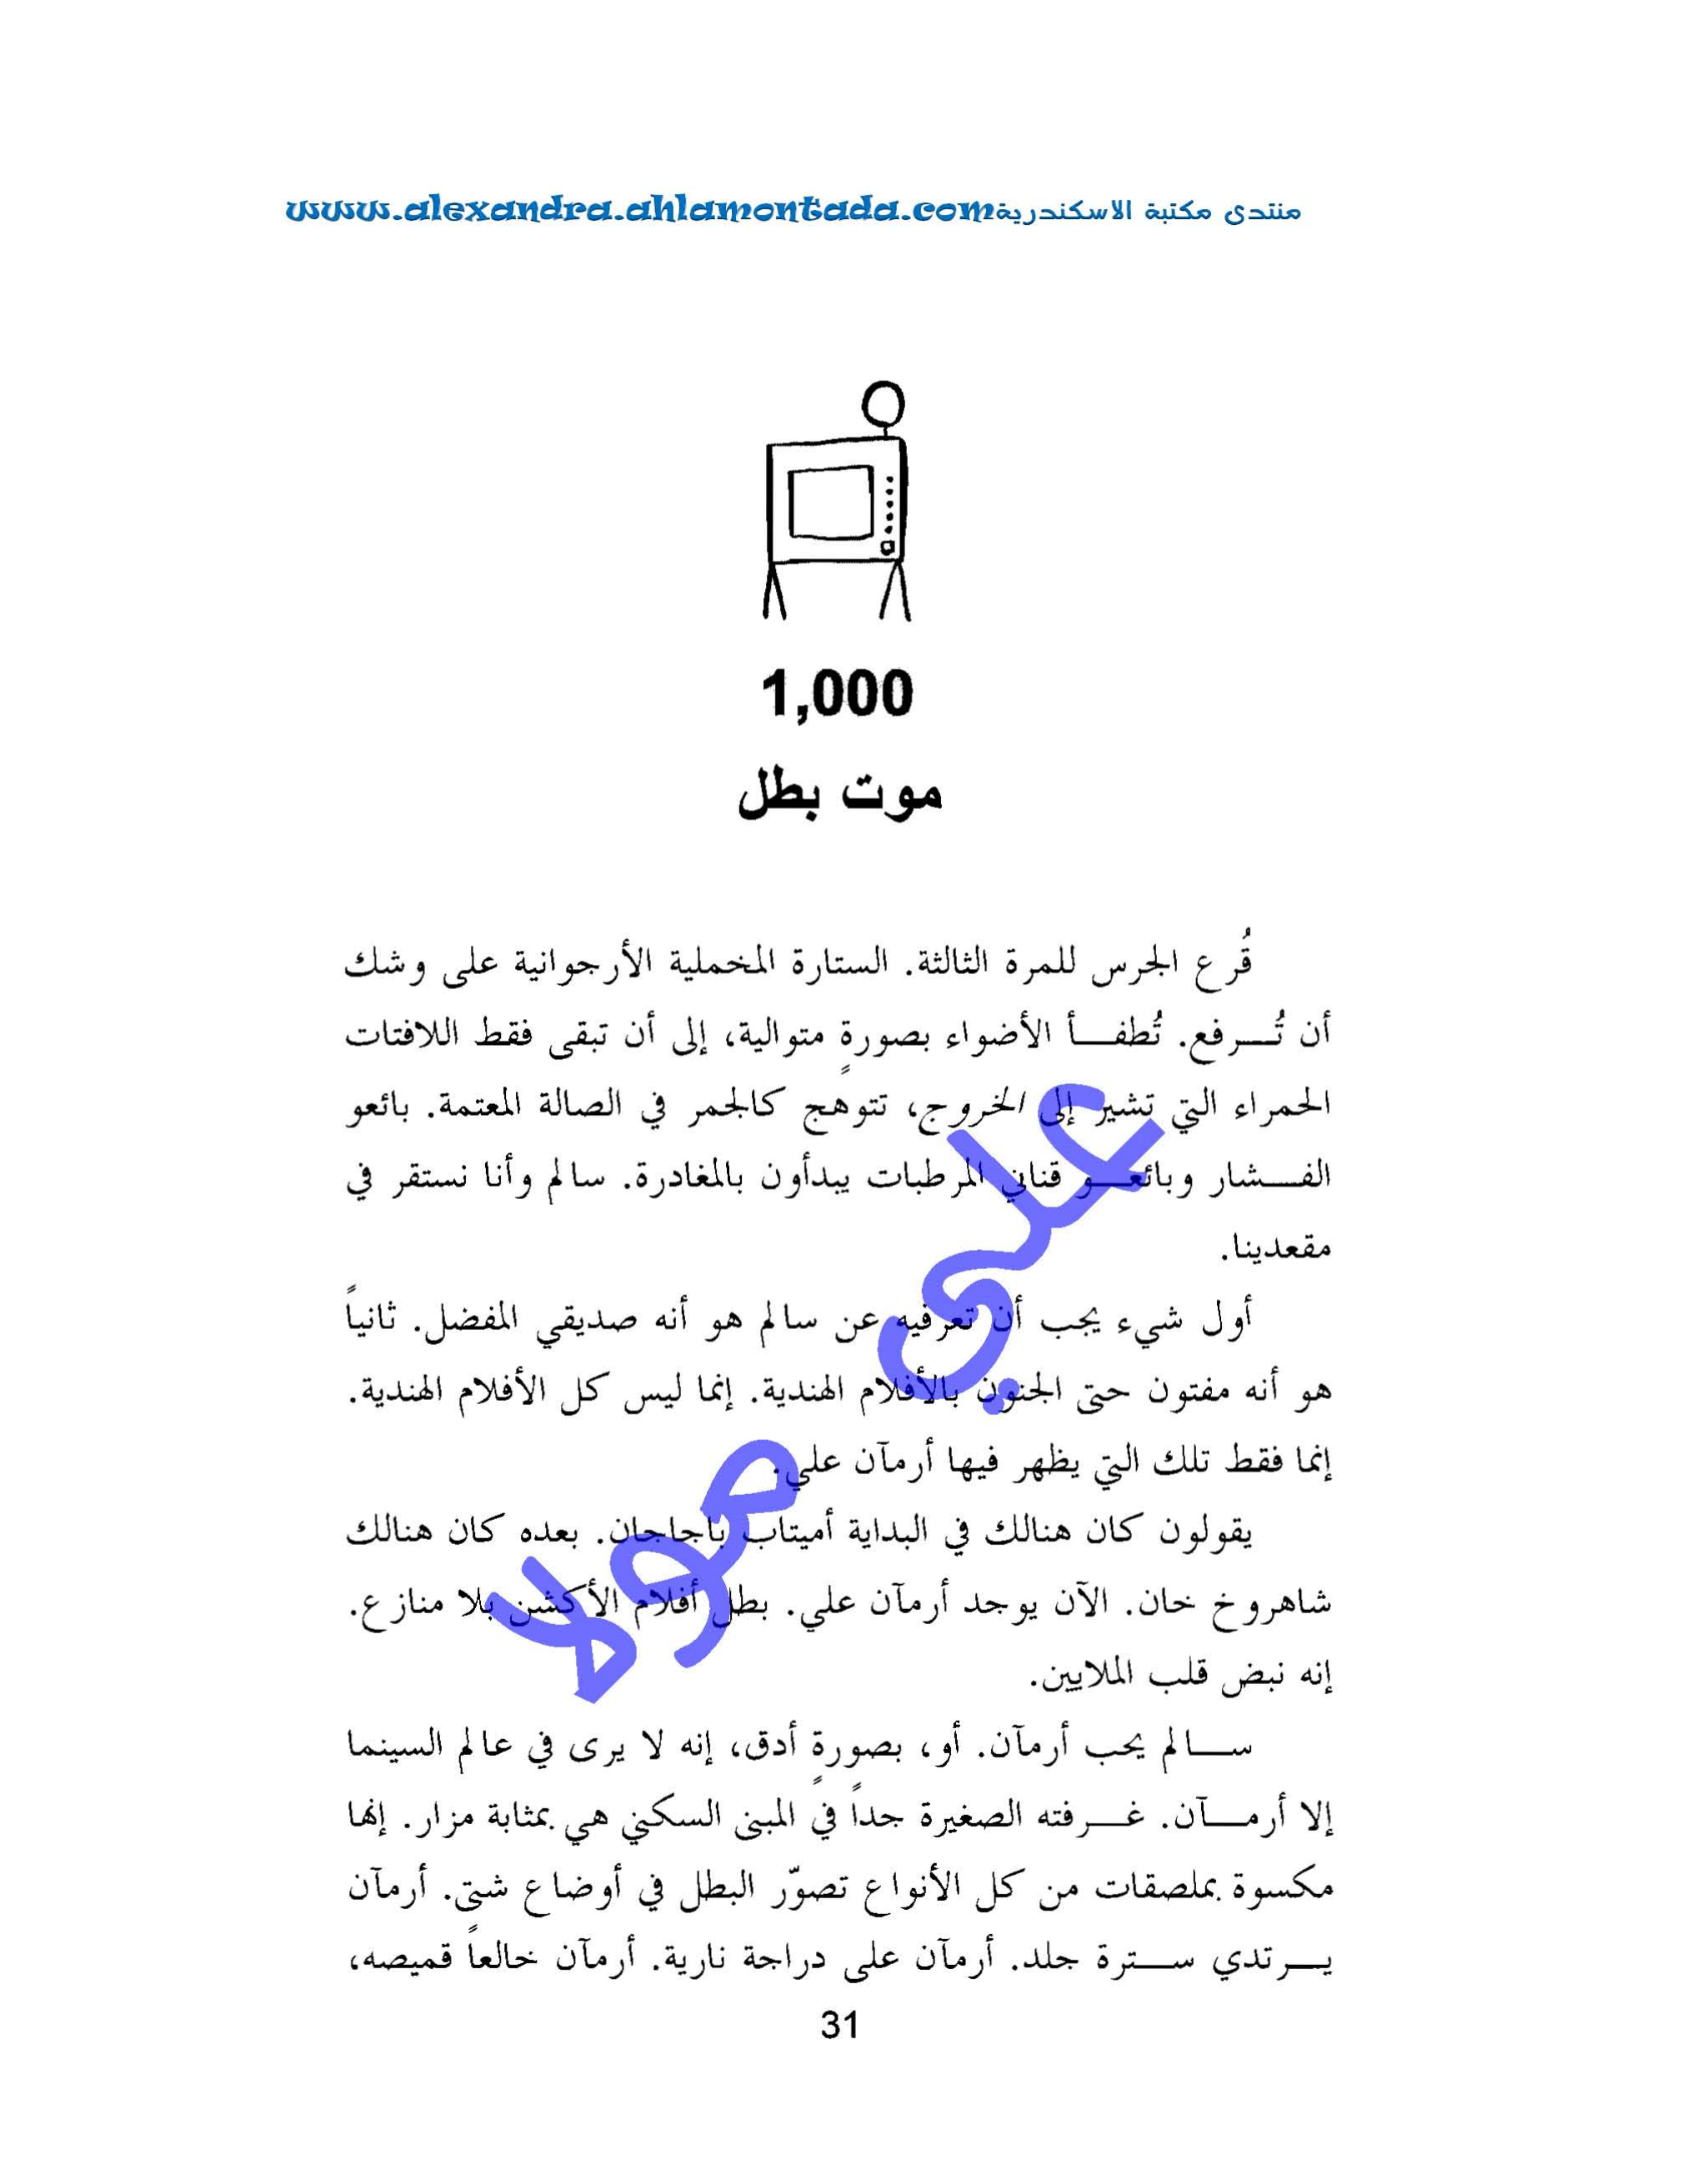 منتدى مكتبة الاسكندرية www.alexandra.ahlamontada.com
1,000
موت بطل
قُرع الجرس للمرة الثالثة. الستارة المخملية الأرجوانية على وشك
أن تُرفع. تُطفأ الأضواء بصورةٍ متوالية، إلى أن تبقى فقط اللافتات
الحمراء التي تشير إلى الخروج، تتوهج كالجمر في الصالة المعتمة. بائعو
الفشار وبائعو قناني المرطبات يبدأون بالمغادرة. سالم وأنا نستقر في
مقعدينا.
أول شيء يجب أن تعرفيه عن سالم هو أنه صديقي المفضل. ثانياً
هو أنه مفتون حتى الجنون بالأفلام الهندية. إنما ليس كل الأفلام الهندية.
إنما فقط تلك التي يظهر فيها أرمآن علي.
يقولون كان هنالك في البداية أميتاب باجاجان. بعده كان هنالك
شاهروخ خان. الآن يوجد أرمآن علي. بطل أفلام الأكشن بلا منازع.
إنه نبض قلب الملايين.
سالم يحب أرمآن. أو، بصورةٍ أدق، إنه لا يرى في عالم السينما
إلا أرمآن. غرفته الصغيرة جداً في المبنى السكني هي بمثابة مزار. إنها
مكسوة بملصقات من كل الأنواع تصوّر البطل في أوضاع شتى. أرمآن
يرتدي سترة جلد. أرمآن على دراجة نارية. أرمآن خالعاً قميصه،
31
علي مولا